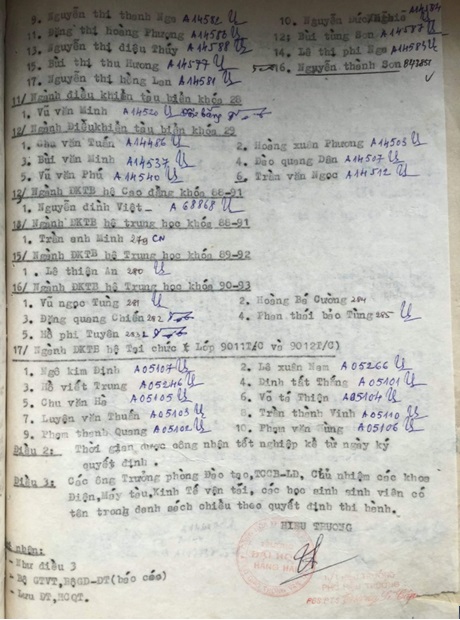 9. Nguyễn thi thanh Nga A14582
10. Nguyễn A14584
11. Đặng thi hoàng Phương A14586
12. Bùi tòng Sơn A14587
13. Nguyễn thi diệu Thúy A14588
14. Lê thi phi Nga A14584
15. Bùi thi thu Hương A14577
16. Nguyễn thanh Sơn 842851
17. Nguyễn thi hồng Lan A14581
11/ Ngành điều khiển tàu biển khóa 28
1. Vũ văn Minh A14520
12/ Ngành Điềukhiển tàu biển khóa 29
1. Chu văn Tuấn A14486
2. Hoàng xuân Phương A14503
3. Bùi văn Minh A14537
4. Đào quang Dân A14507
5. Vũ văn Phú A14540
6. Trần văn Ngọc A14512
12/ Ngành ĐKTB hệ Cao đẳng khóa 88-91
1. Nguyễn đình Việt A 68868
13/ Ngành ĐKTB hệ trung học khóa 88-91
1. Trần anh Minh 279 CN
15/ Ngành ĐKTB hệ Trung học khóa 89-92
1. Lê thiện An 280
16/ Ngành ĐKTB hệ Trung học khóa 90-93
1. Vũ ngọc Tùng 281
2. Hoàng Bá Cường 284
3. Đặng quang Chiến 282
4. Phan thái bảo Tùng 285
5. Hồ phi Tuyên 283
17/ Ngành ĐKTB hệ Tại chức ( Lớp 9011T/C và 9012T/C)
1. Ngô kim Định A05107
2. Lê xuân Nam A05266
3. Hồ viết Trung A05246
4. Đinh tất Thắng A05101
5. Chu văn Hà A05105
6. Võ tá Thiện A05104
7. Luyện văn Thuấn A05103
8. Trần thanh Vinh A05110
9. Phạm thanh Quang A05102
10. Phạm văn Hưng A05106
Điều 2: Thời gian được công nhận tốt nghiệp kể từ ngày ký
quyết định .
Điều 3: Các ông Trưởng phòng Đào tạo,TCCB-LĐ, Chủ nhiệm các khoa
Điện,Máy tàu,Kinh Tế vận tải, các học sinh sinh viên có
tên trong danh sách chiếu theo quyết định thi hành.
HIỆU TRƯỞNG
nhận:
- Như điều 3
- Bộ GTVT,BộGD-ĐT(báo cáo)
- Lưu ĐT,HCQT.
ĐẠI HỌC
HÀNG HẢI